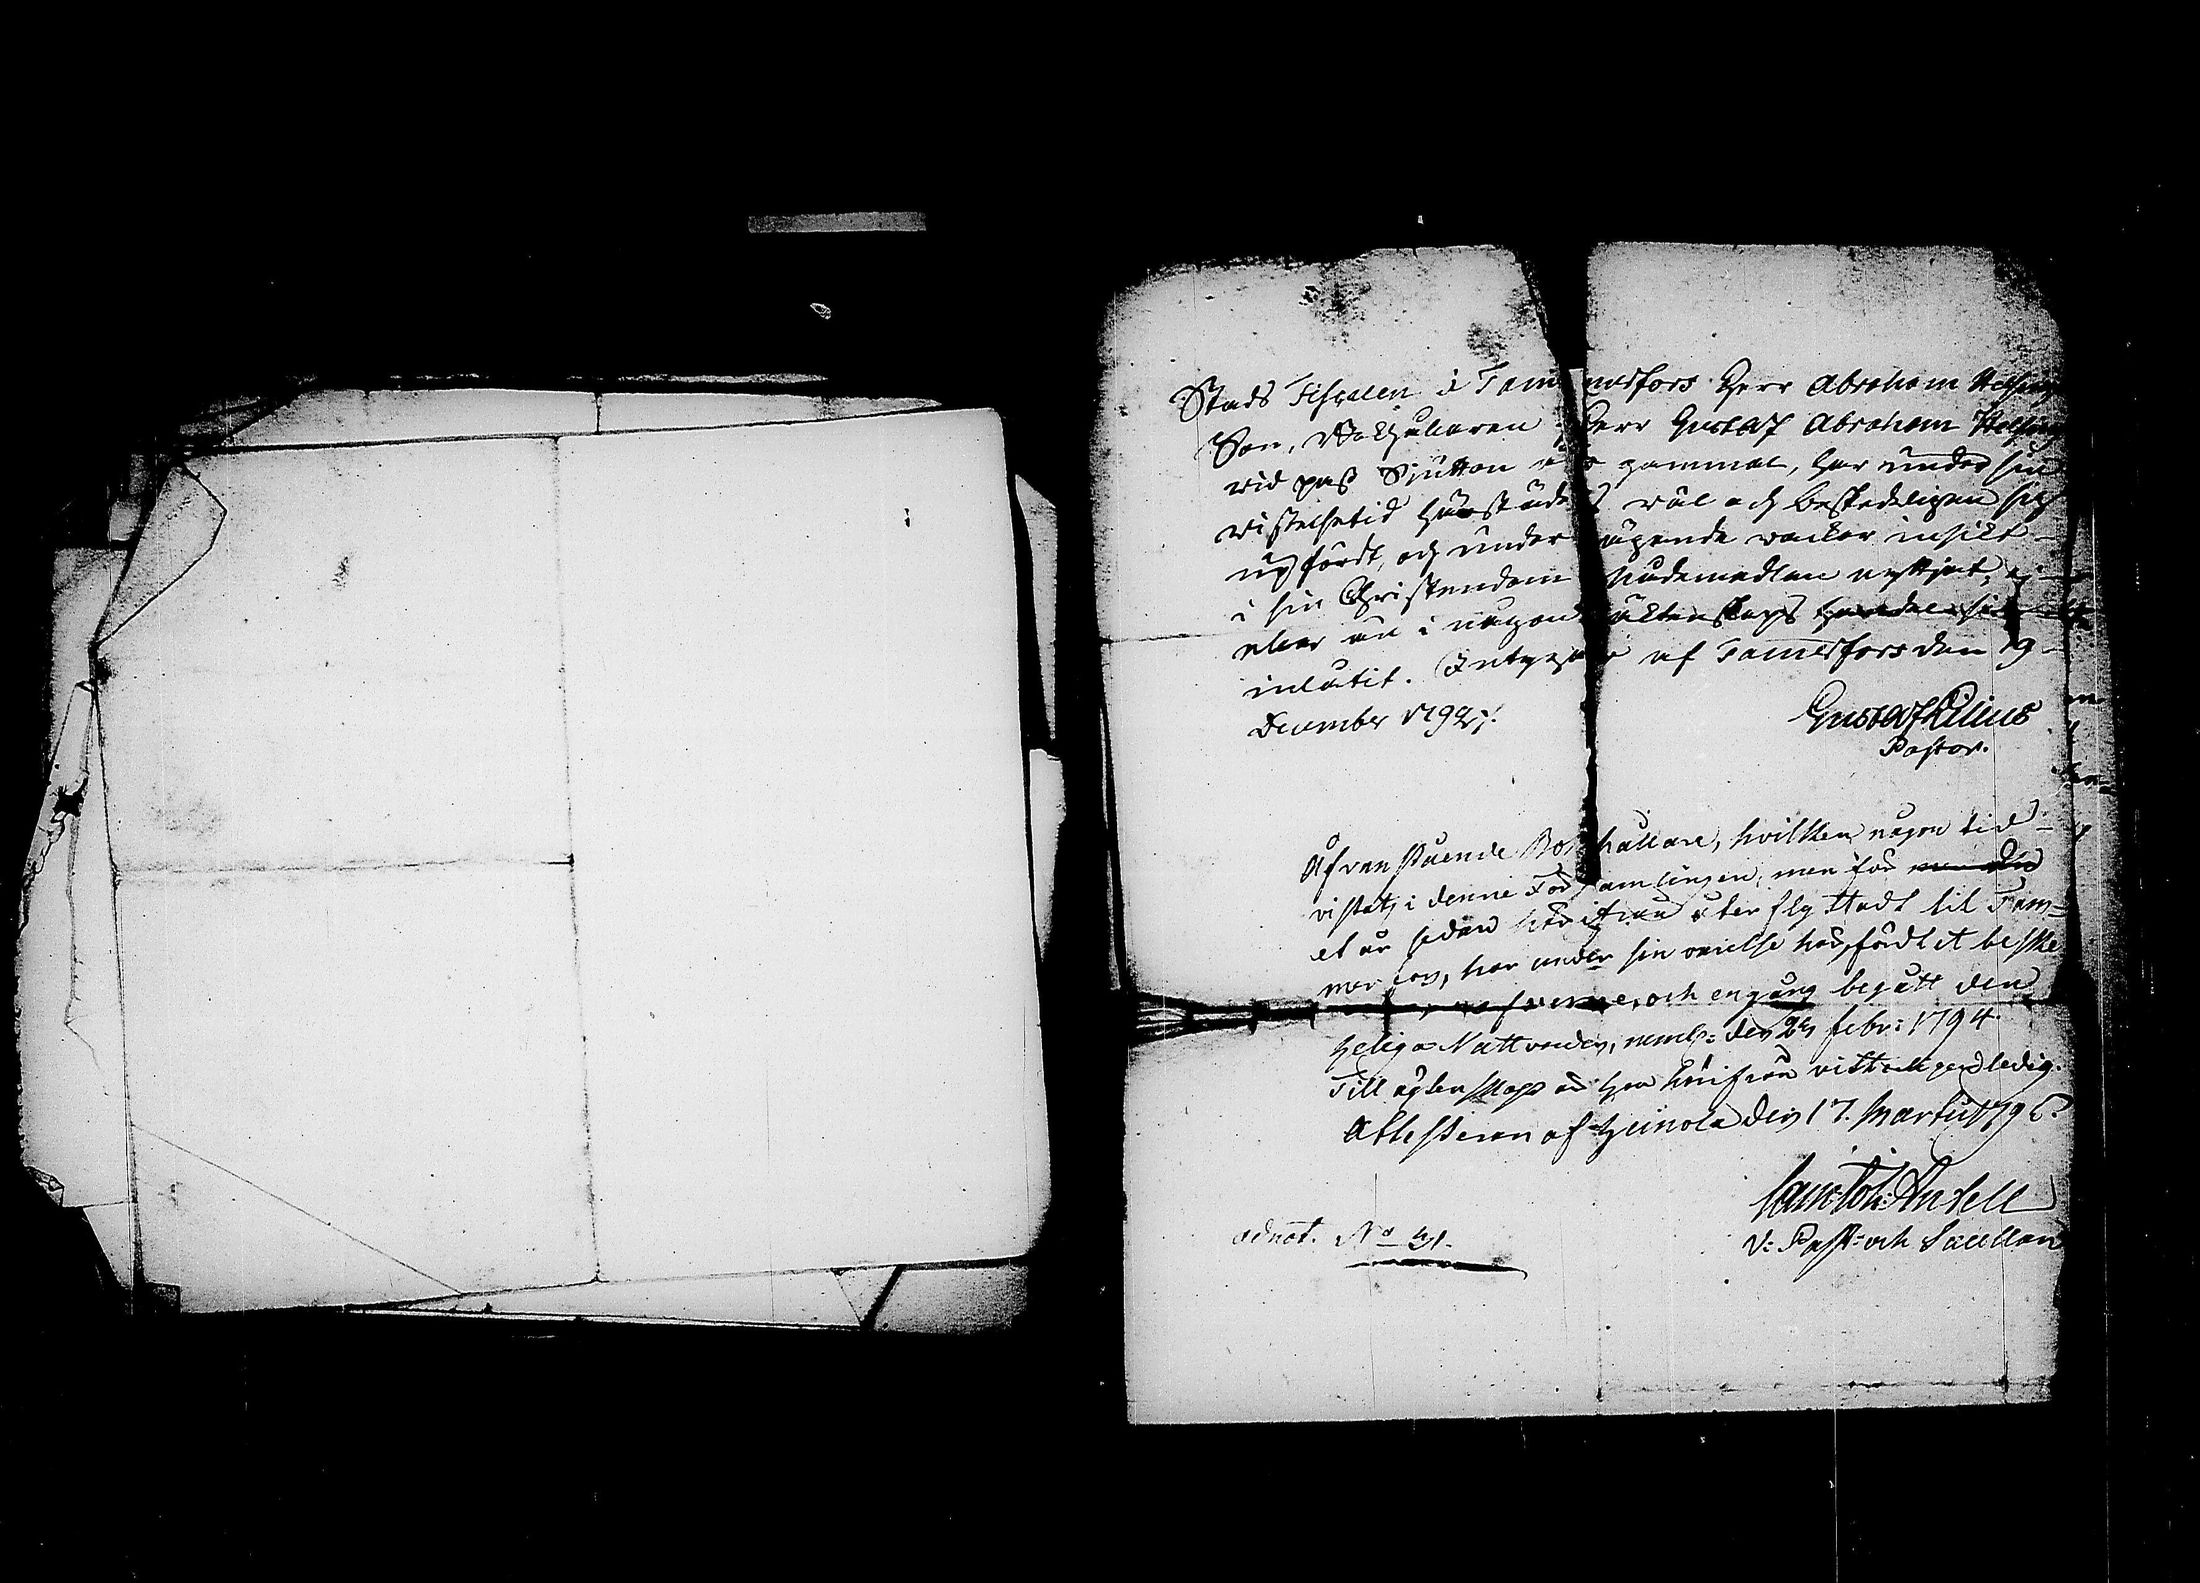 Stads Fiscalen i Tammerfors Herr Abraham Helsing
Son, Bokhållaren Herr Gustaf Abraham Helsing
vid pass Sjutton års gammal, har under sin
vistelsetid härstädes väl och beskedeligen sig
upfördt, och under ägende vacker insikt
i sin Christendom Nådemedlen nyttjat, ej
eller än i någon ägtenskaps handel sig
inlåtit. Intygar af Tammerfors den 19
December 1792.
Gustaf Lilius
Pastor.
Ofvanstående Bokhållare, hvilken någon tid
vistats i denne Församlingen, men för
et år sedan härifrån åter flyttadt til Tam=
merfors, har under sin varelse här, fördt et beskе
och engång begått den
Heliga Nattvarden, neml: den 24 febr: 1794.
Till ägtenskap är han härifrån vitterligen ledig.
Attesteras af Heinola den 17. Martii 179
Joh: Andell
V: Past: och Sacellan
adnot. No 31.